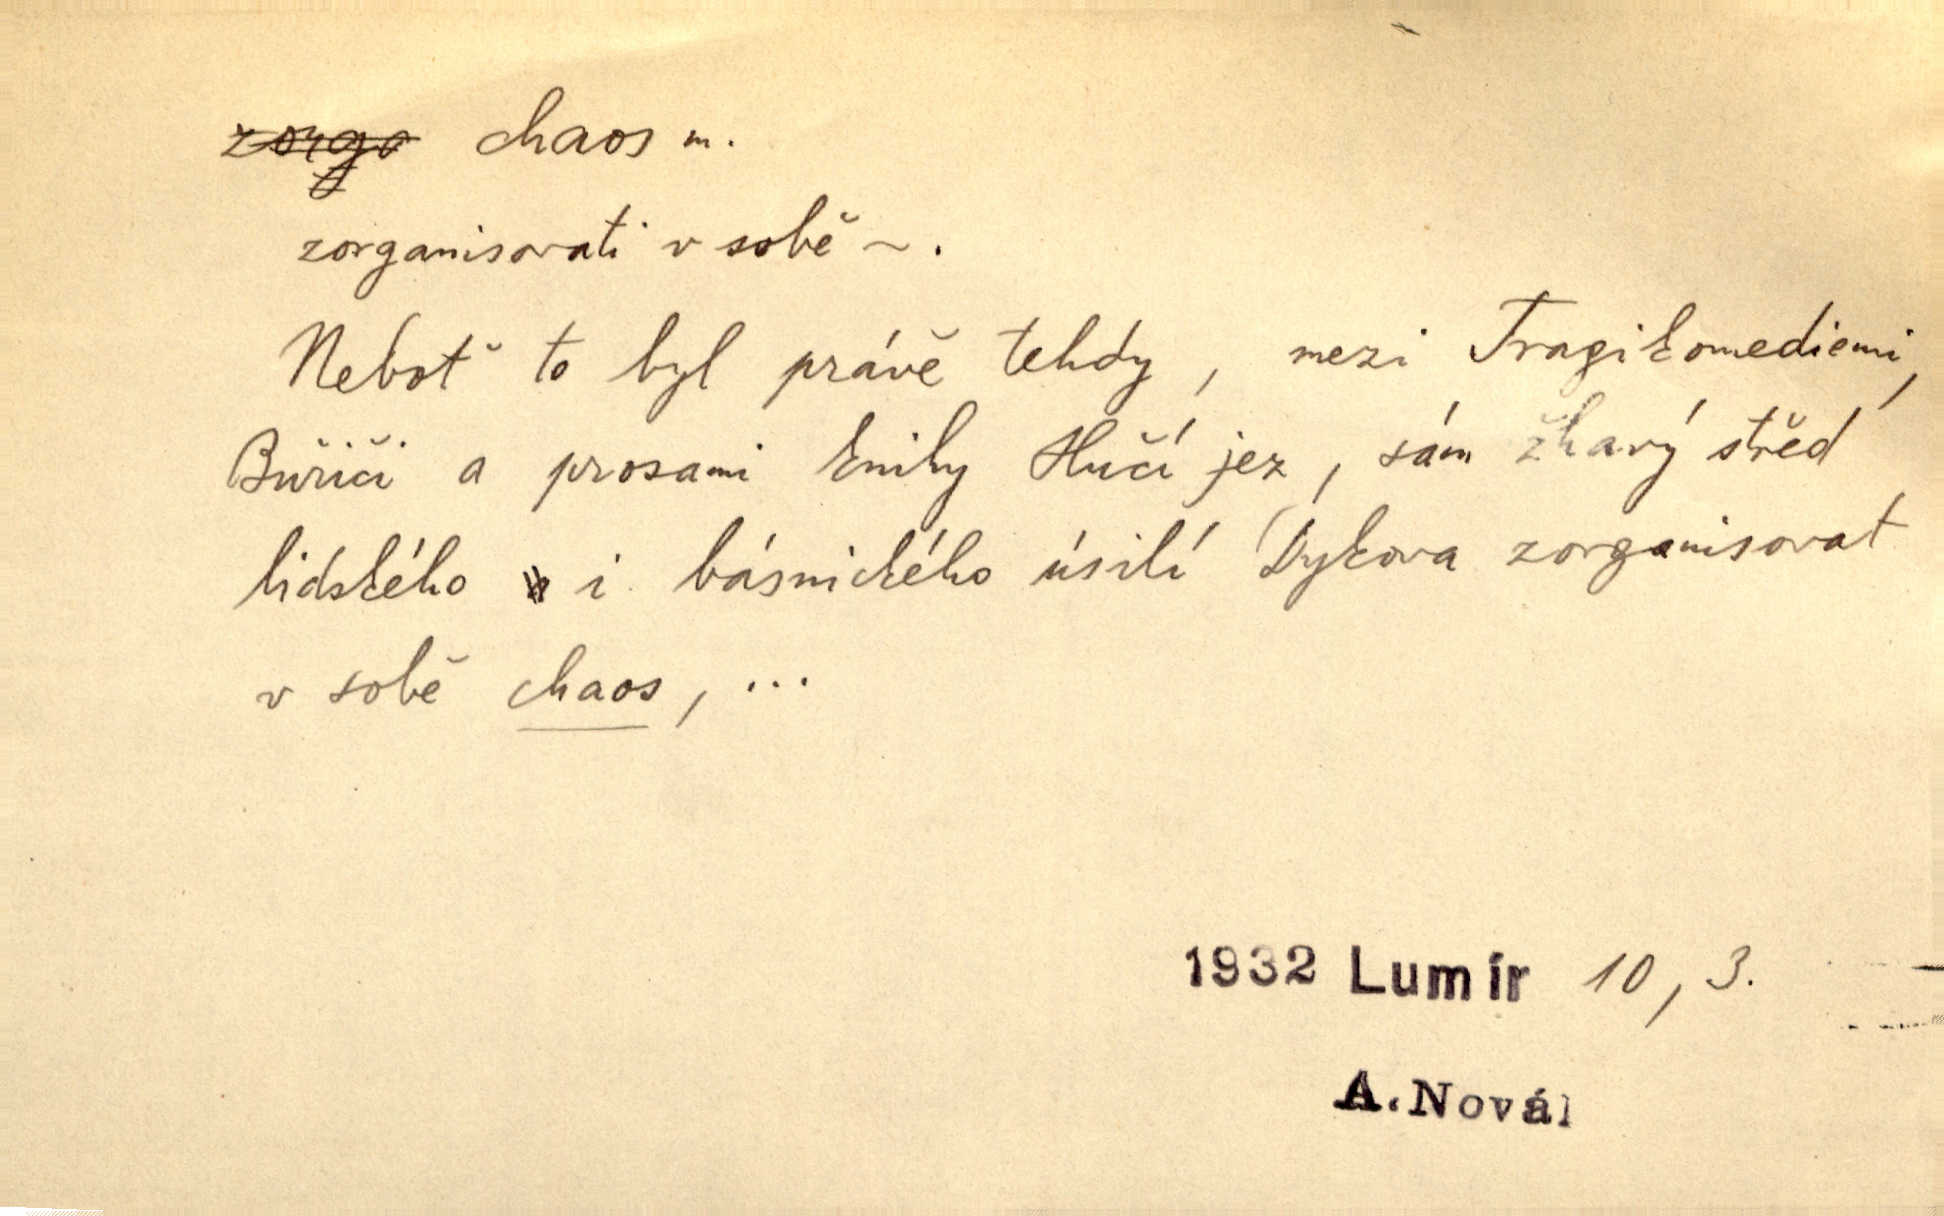 zorga chaos m.
zorganisovati v sobě ~.
Neboť to byl právě tehdy, mezi Tragikomediemi,
Buřiči a prosami knihy Hučí jez, sám žhavý střed
lidského i básnického úsilí Dykova zorganisovat
v sobě chaos, ...
1932 Lumír 10, 3.
A. Novák